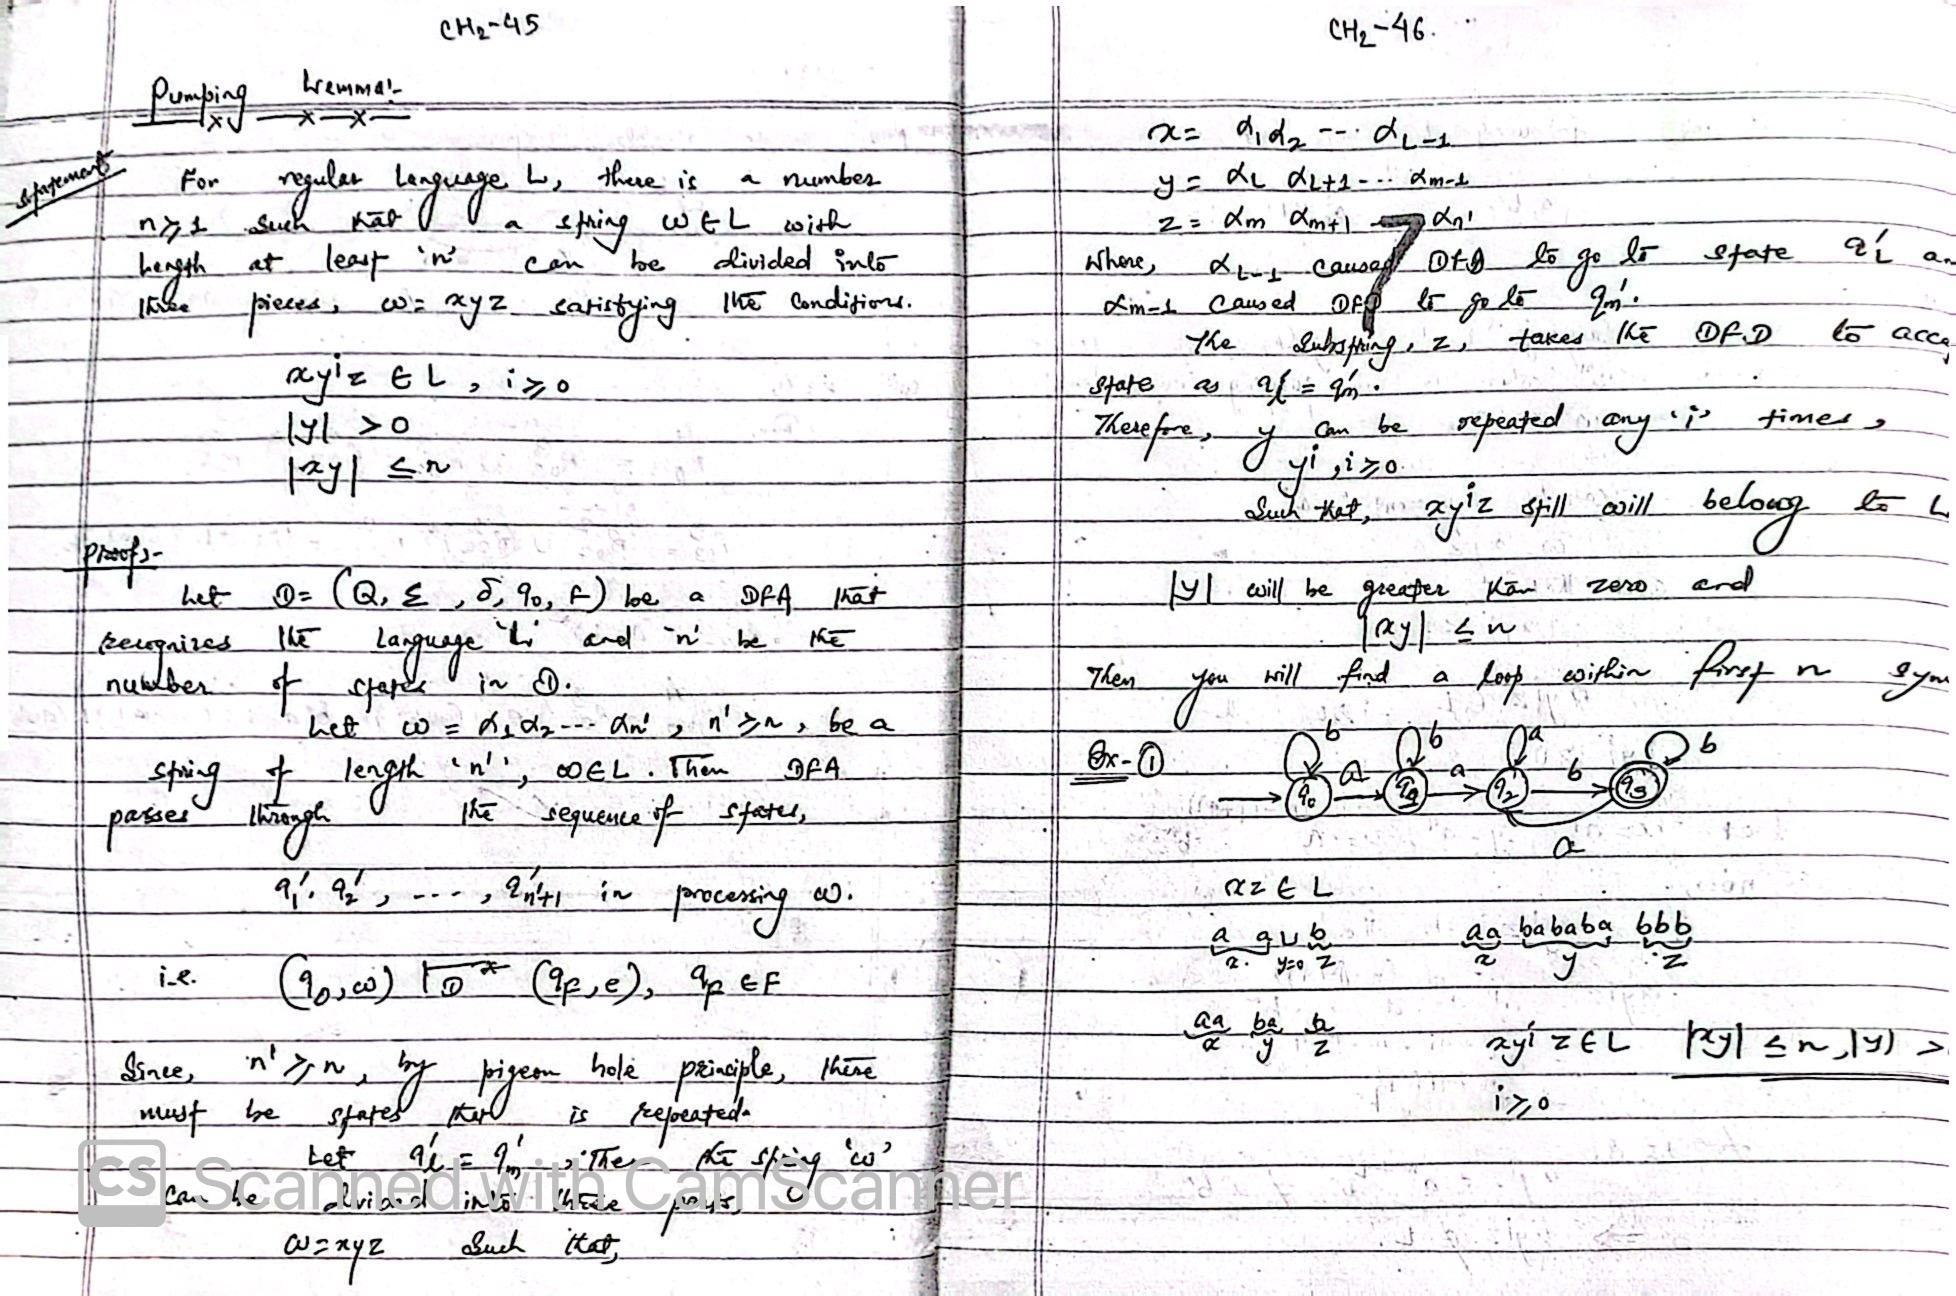 CH2-45
Pumping Lemma:-
Statement
For regular Language L, there is a number
n≥1 such that a string ω∈L with
Length at least 'n' can be divided into
three pieces, ω= xyz satisfying the conditions.
xyⁱz ∈ L , i≥0
|y| >0
|xy| ≤n
Proof:-
Let D= (Q, Σ, δ, q₀, F) be a DFA that
recognizes the Language 'L' and 'n' be the
number of states in D.
Let ω = α₁α₂--- αn' , n'≥n , be a
string of length 'n'', ω∈L. Then DFA
passes through the sequence of states,
q₁', q₂', ----, q'n'+1 in processing ω.
i.e. (q₀,ω) ⊢D* (qF,e), qF ∈F
Since, n'≥n, by pigeon hole principle, there
must be states that is repeated.
Let q'L = q'm , The the string 'ω'
can be divided into three parts,
ω=xyz such that,
CH2-46.
x= α₁α₂ --- αL-1
y= αL αL+1--- αm-1
z= αm αm+1 αn'
Where, αL-1 caused DFD to go to state q'L an
αm-1 caused DFD to go to q'm.
The substring, z, takes the DFD to acce
state as q'L = q'm.
Therefore, y can be repeated any 'i' times,
yⁱ ,i≥0.
Such that, xyⁱz still will belong to L
|y| will be greater than zero and
|xy| ≤n
Then you will find a loop within first n sym
Ex-①
b b a b
a a b
q₀ q₁ q₂ q₃
a
xz ∈ L
a a ⊔ b aa bababa bbb
x. y=0 z x y z
aa ba b
x y z
xyⁱ z∈L |xy| ≤n, |y| >
i≥0
CS Scanned with CamScanner